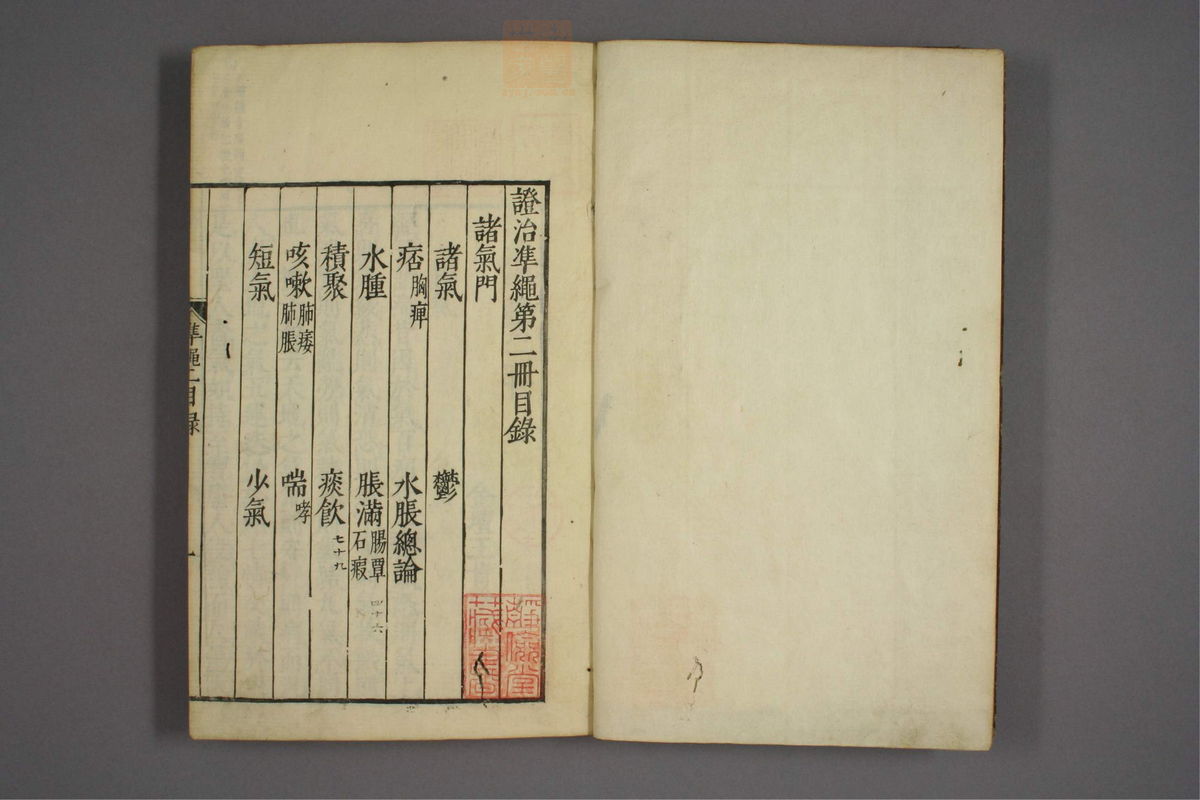 證治準繩第二冊目錄
諸氣門
諸氣 鬱
痞 胸痺 水脹總論
水腫 脹滿 腸覃 石瘕 四十六
積聚 痰飲 七十九
咳嗽 肺痿 肺脹 喘 哮
短氣 少氣
準繩二目録